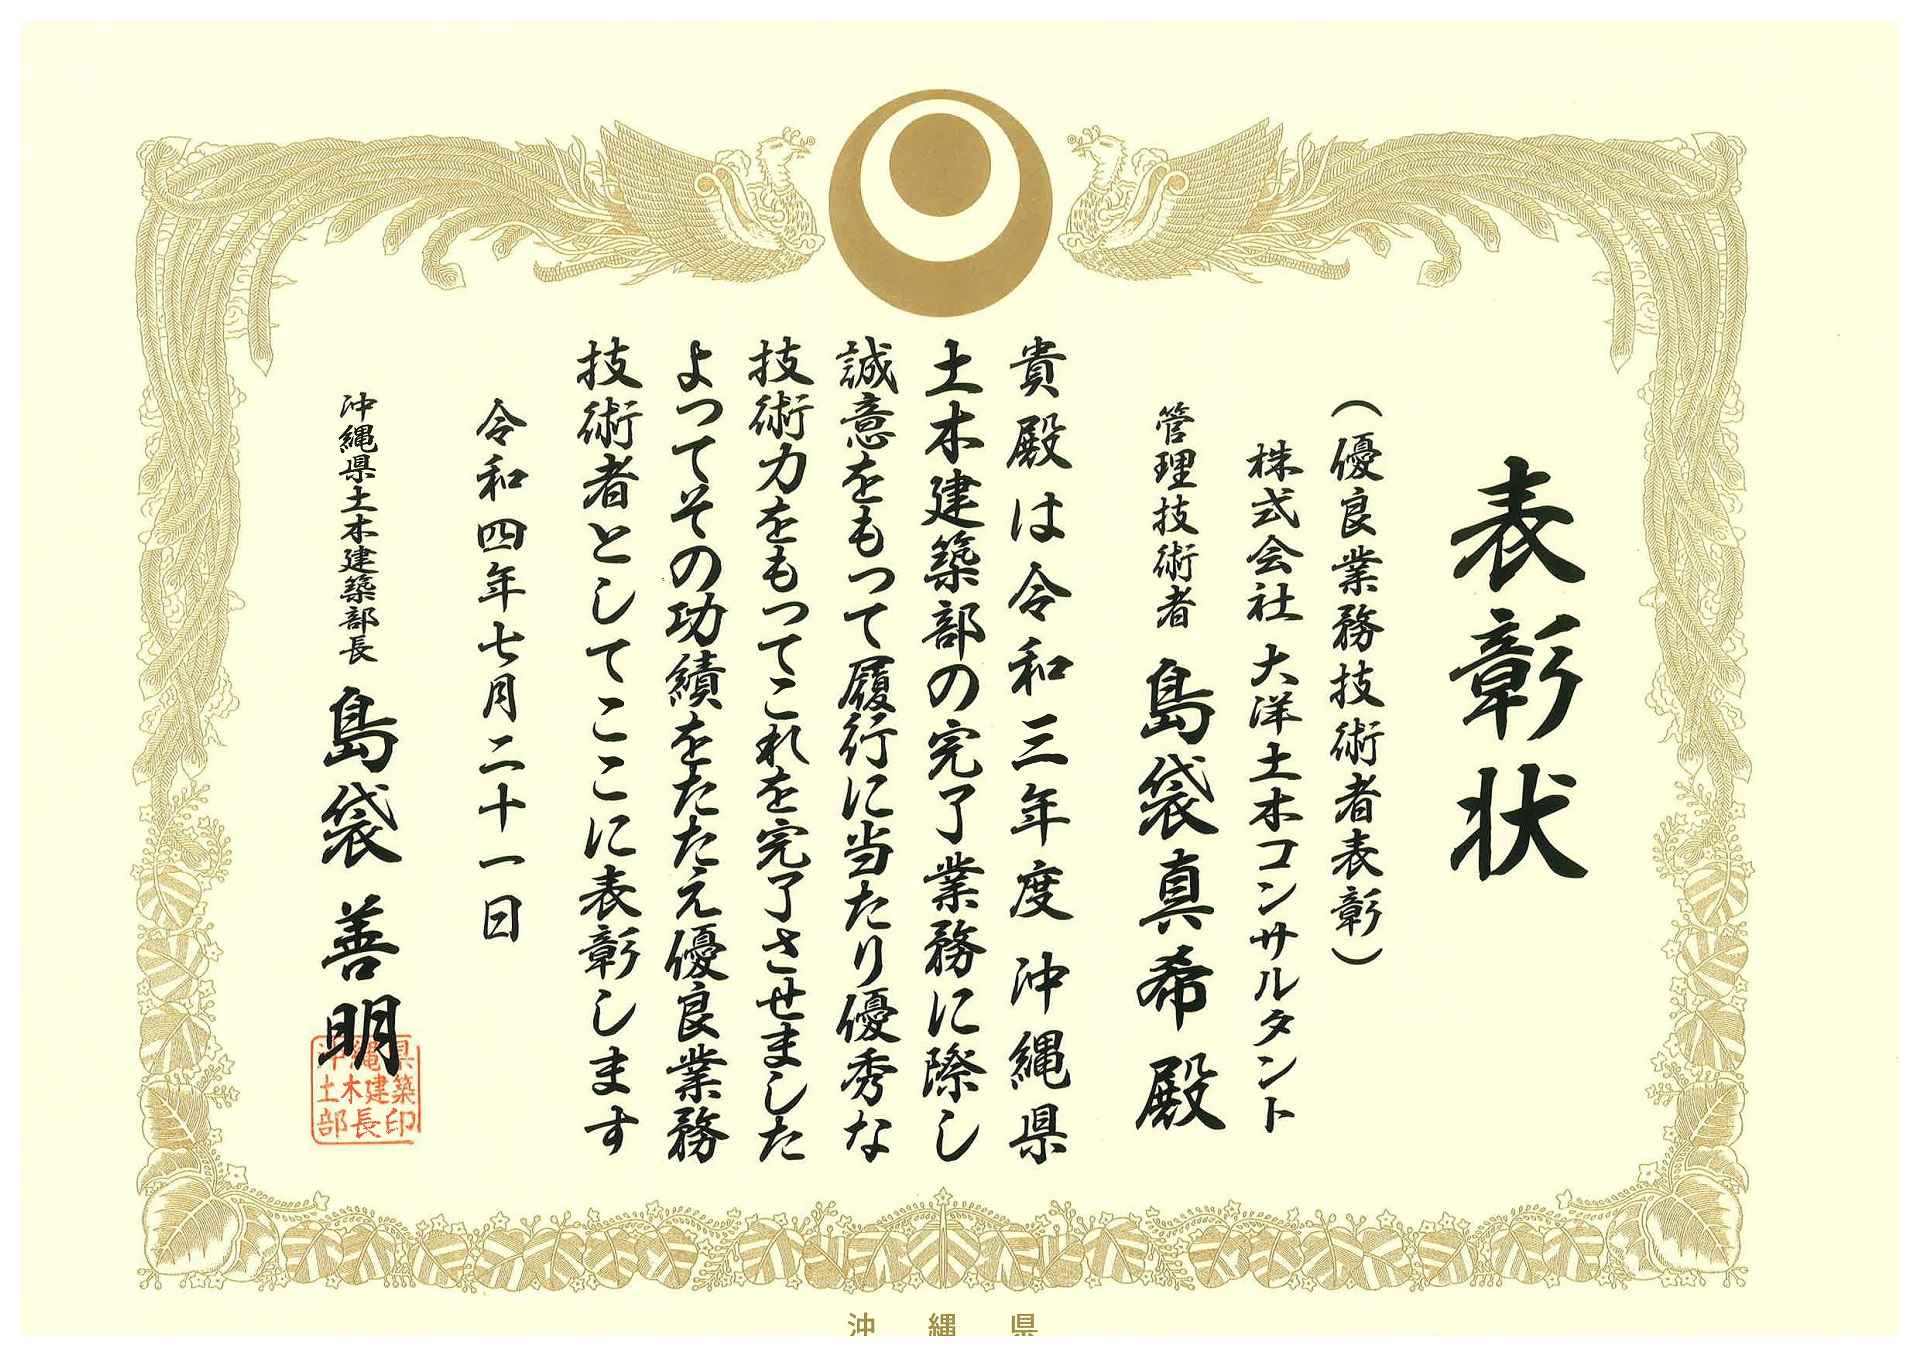 表彰状
（優良業務技術者表彰）
株式会社 大洋土木コンサルタント
管理技術者 島袋真希 殿
貴殿は令和三年度沖縄県
土木建築部の完了業務に際し
誠意をもって履行に当たり優秀な
技術力をもってこれを完了させました
よってその功績をたたえ優良業務
技術者としてここに表彰します
令和四年七月二十一日
沖縄県土木建築部長 島袋 善明
沖縄県
土木建築
部長印
沖縄県